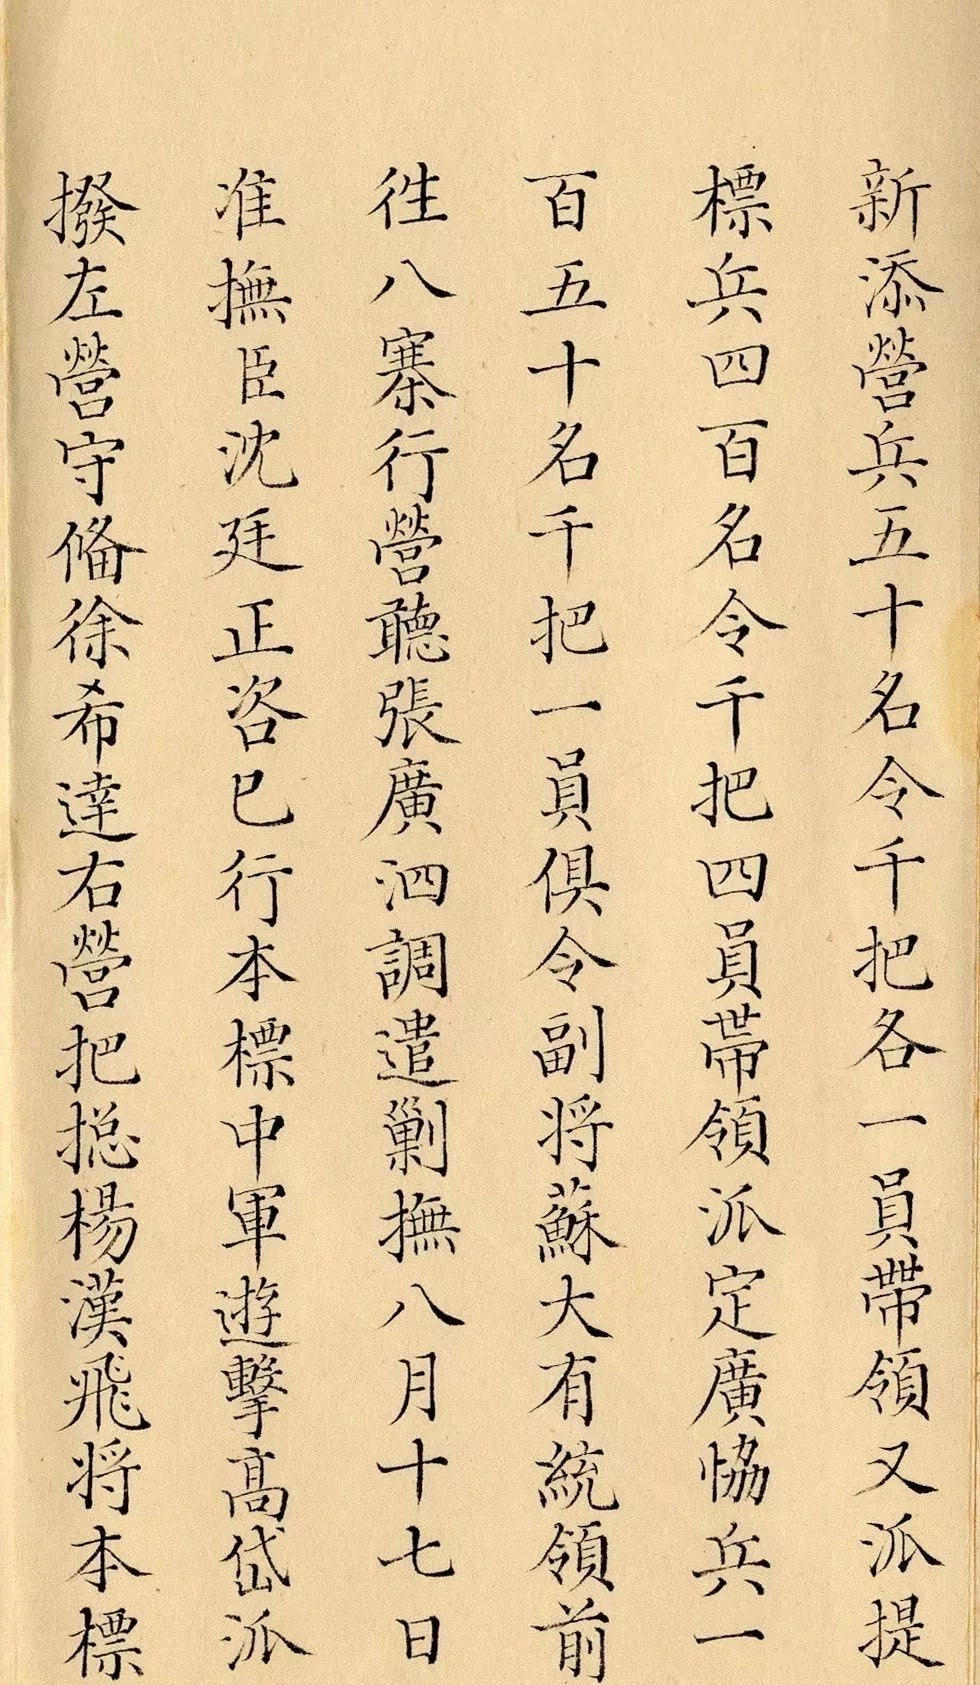 新添營兵五十名令千把各一員帶領又派提
標兵四百名令千把四員帶領派定廣恊兵一
百五十名千把一員俱令副将蘇大有統領前
徃八寨行營聽張廣泗調遣剿撫八月十七日
准撫臣沈廷正咨已行本標中軍遊擊髙岱派
撥左營守俻徐希達右營把揔楊漢飛将本標